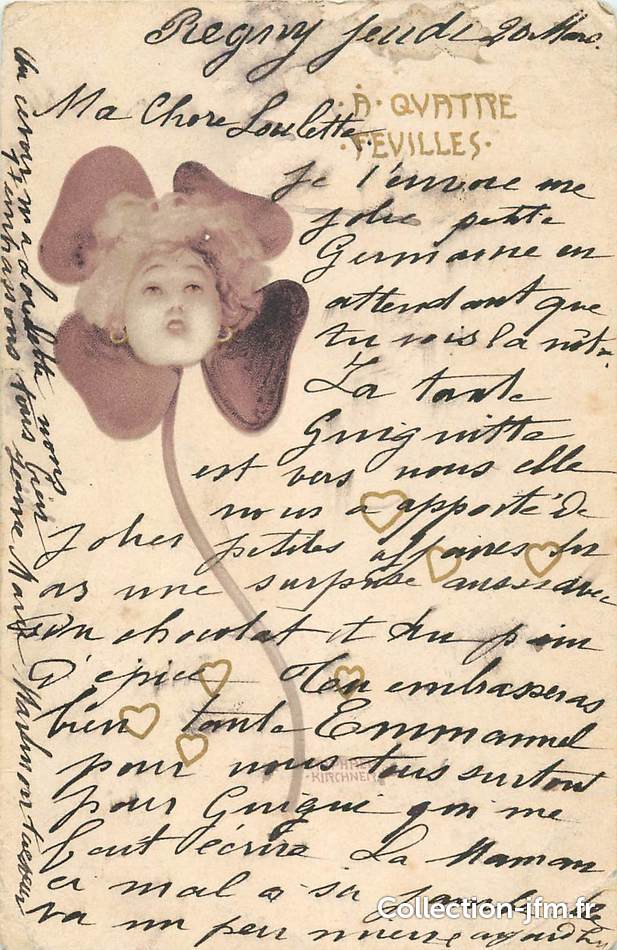 Regny Jeudi 20 Mars
À · QVATRE
· FEVILLES ·
Ma Chere Loulette
Je t'envoie une
jolie petite
Germaine en
attendant que
tu vois la nôtre
La tante
Guiguitte
est vers nous elle
nous a apporté de
jolies petites affaires
as une surprise aussi avec
du chocolat et du pain
d'épice Tu embrasseras
bien tante Emmanuel
pour nous tous surtout
pour Guigui qui me
faut écrire La Maman
a mal a sa jambe
va un peu mieux aujourd'hui
KIRCHNER
Au revoir ma Loulette nous
t'embrassons tous bien
Jeanne Marie
Collection-jfm.fr